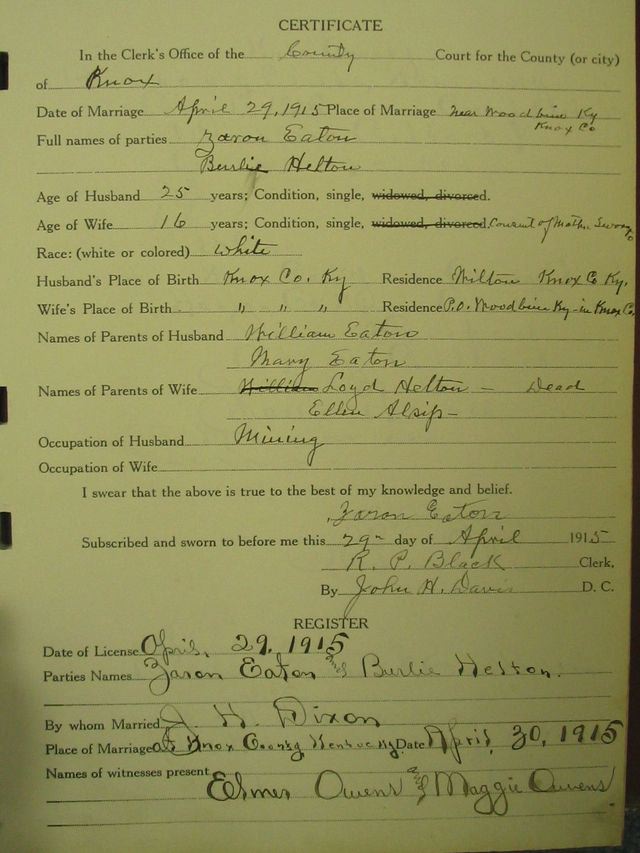 CERTIFICATE
In the Clerk's Office of the County Court for the County (or city)
of Knox
Date of Marriage April 29, 1915 Place of Marriage Near Woodbine Ky
Knox Co
Full names of parties Zaron Eaton
Burlie Helton
Age of Husband 25 years; Condition, single, widowed, divorced.
Age of Wife 16 years; Condition, single, widowed, divorced. Consent of Mother
Race: (white or colored) White
Husband's Place of Birth Knox Co. Ky Residence Wilton Knox Co Ky.
Wife's Place of Birth " " " Residence P.O. Woodbine Ky - in Knox Co.
Names of Parents of Husband William Eaton
Mary Eaton
Names of Parents of Wife William Loyd Helton - Dead
Ellen Alsip -
Occupation of Husband Mining
Occupation of Wife
I swear that the above is true to the best of my knowledge and belief.
Zaron Eaton
Subscribed and sworn to before me this 29 day of April 1915
R. P. Black Clerk,
By John H. Davis D. C.
REGISTER
Date of License April, 29, 1915
Parties Names Zaron Eaton and Burlie Helton.
By whom Married J. H. Dixon
Place of Marriage at Knox County Kentucky Date April, 30, 1915
Names of witnesses present Elmer Owens and Maggie Owens